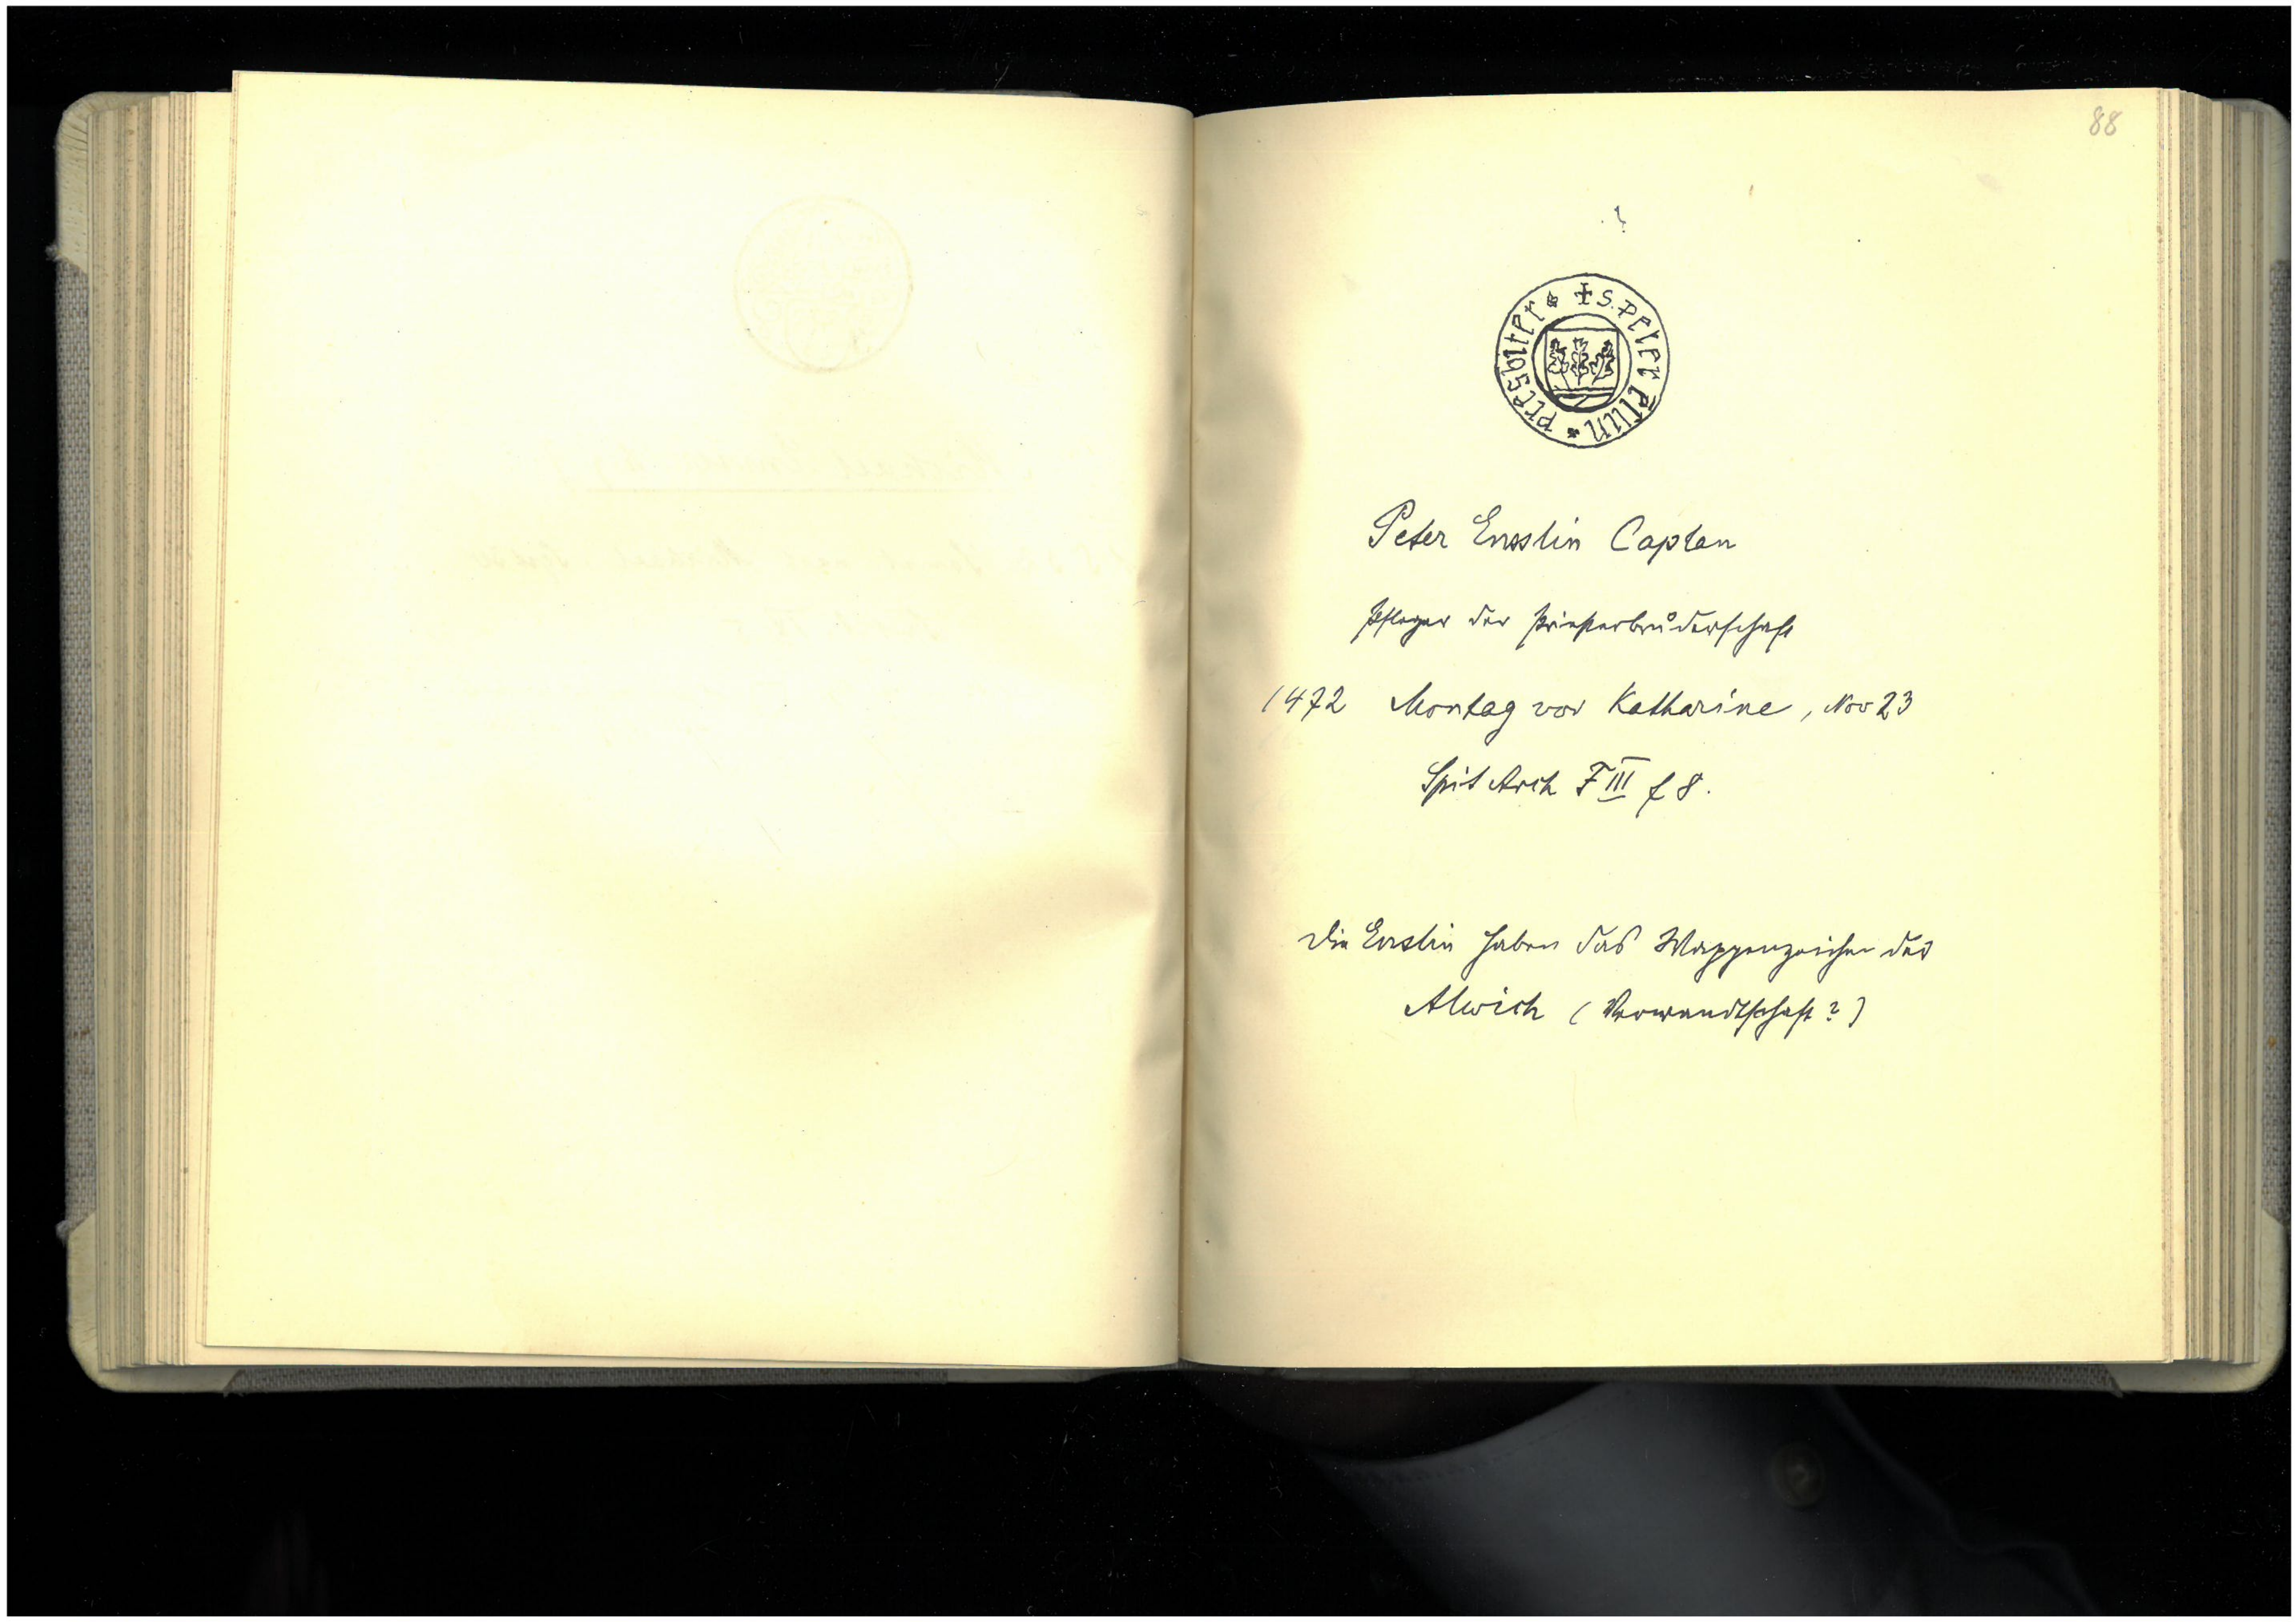 88
✝ S. Peter
presbiter
Peter Ensslin Caplan
Pfleger der Priesterbruderschaft
1472 Montag vor Katharine, Nov 23
Spit Arch F III f 8.
Die Enslin haben das Wappenzeichen der
Alwich (Verwandtschaft?)